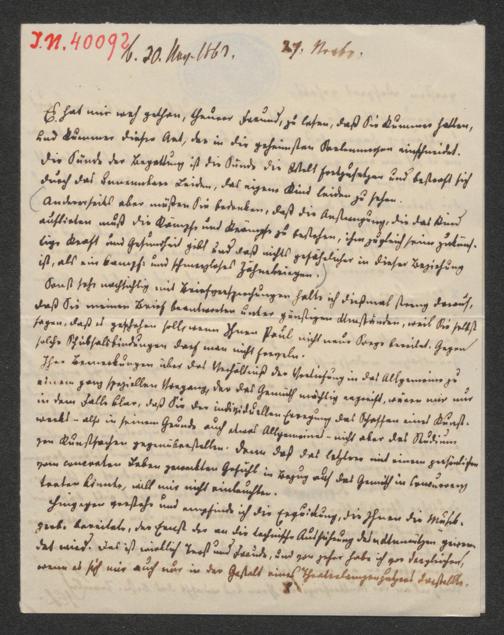 I.N. 40092
b. 20. Nov. 1863. 27. Novbr.
Es hat mir weh gethan, theurer Freund, zu lesen, daß Sie Kummer hatten,
und Kummer dieser Art, der in die geheimsten Seelenwogen einschneidet.
Die Sünde der Begattung ist die Sünde die Welt fortzusetzen und bestraft sich
durch das unnennbare Leiden, das eigene Kind leiden zu sehen.
Anderseits aber müssen Sie bedenken, daß die Anstrengung, die das Kind
aufbieten muß die Kämpfe und Krämpfe zu bestehen, ihm zugleich seine zukünf-
tige Kraft und Gesundheit gibt und daß nichts gefährlicher in dieser Beziehung
ist, als ein kampf- und schmerzloses Zähnekriegen.
Sonst sehr nachsichtig mit Briefversprechungen halte ich diesmal streng darauf,
daß Sie meinen Brief beantworten unter günstigen Umständen, weil Sie selbst
sagen, daß es geschehen soll, wenn Ihnen Paul nicht neue Sorge bereitet. Gegen
solche Schicksalbindungen darf man nicht freveln.
Ihre Bemerkungen über das Verhältniß der Vertiefung in das Allgemeine zu
einem ganz speziellen Vorgang, der das Gemüth mächtig ergreift, wären mir nur
in dem Falle klar, daß Sie der individuellen Erregung das Schaffen eines Kunst-
werks – also in seinem Grunde auch etwas Allgemeines – nicht aber das Studium
von Kunstsachen gegenüberstellen. Denn daß das letztere mit einem persönlichen
vom concreten Leben geweckten Gefühl in Bezug auf das Gemüth in Concurrenz
treten könnte, will mir nicht einleuchten.
Hingegen verstehe und empfinde ich die Erquickung, die Ihnen die
bereitet, der Ernst der an die technische Ausführung des Unnützen gewen-
det wird. Das ist wirklich Trost und Freude, und von jeher habe ich das
wenn es sich mir auch nur in der Gestalt eines darstellte.